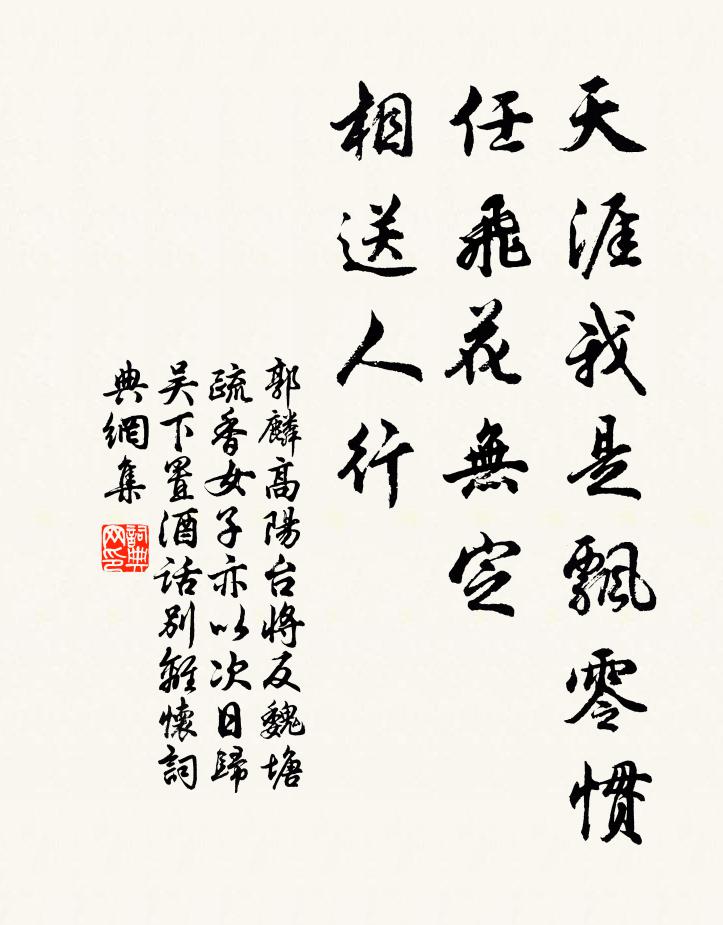 天涯我是飄零慣
任飛花無定
相送人行
郭麟高陽台將反魏塘
疏香女子亦以次日歸
吴下置酒話别離懷詞
典網集
詞典网印